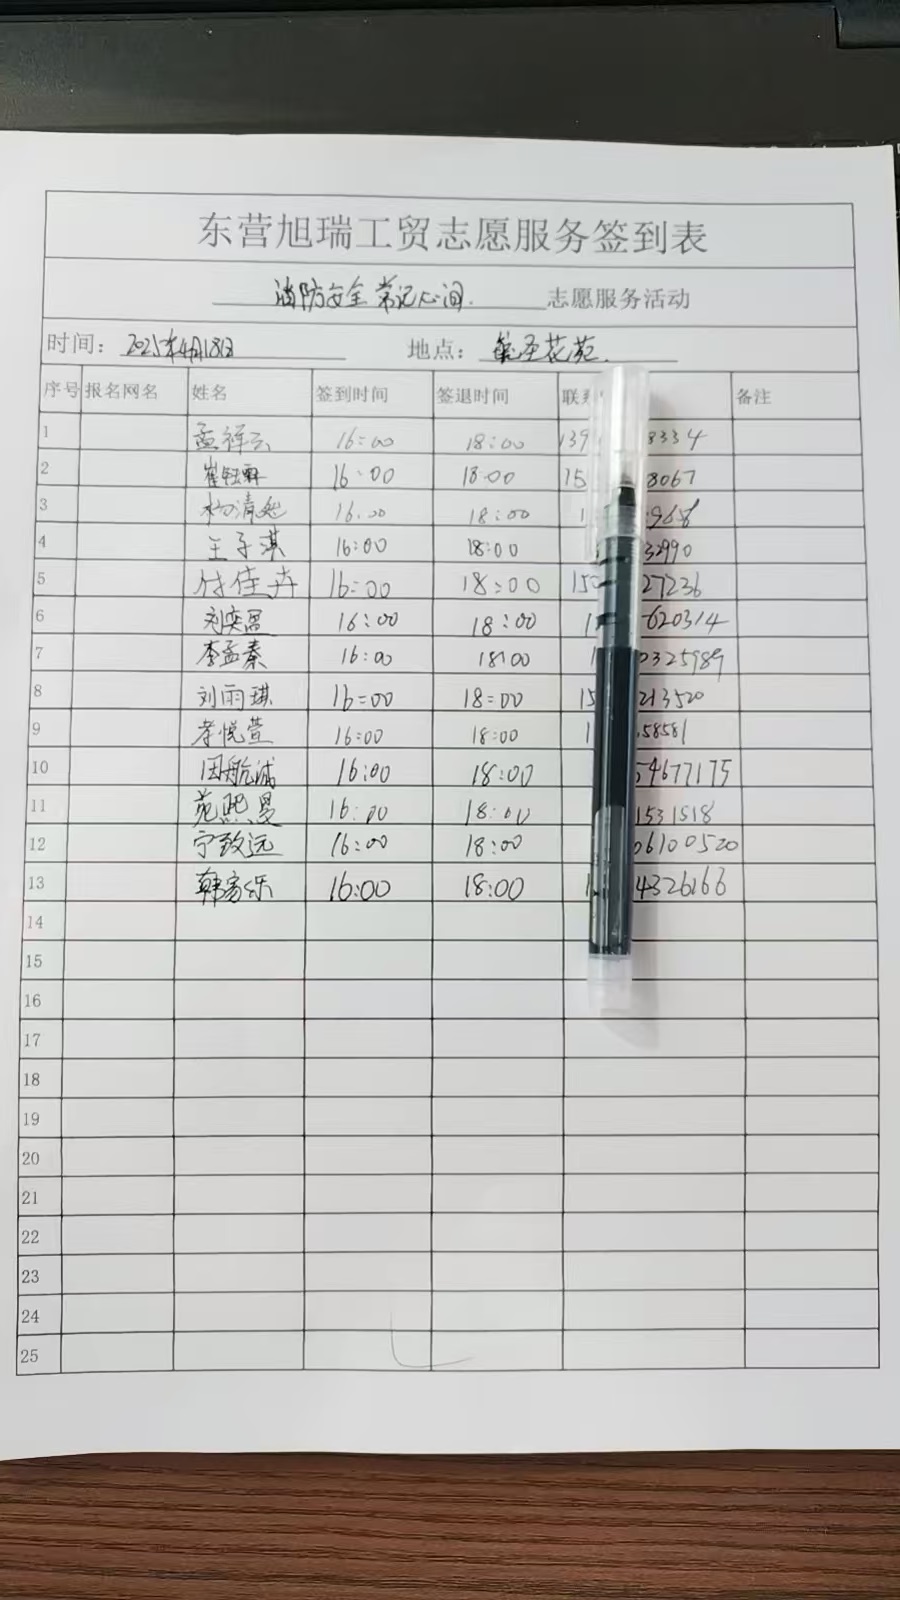 东营旭瑞工贸志愿服务签到表
消防安全 常记心间 志愿服务活动
时间：2025年4月18日 地点：圣花苑
序号 报名网名 姓名 签到时间 签退时间 联系 备注
1 孟祥云 16:00 18:00 139 8334
2 崔钰 16:00 18:00 15 8067
3 杨清 16:00 18:00 1 9658
4 王子淇 16:00 18:00 32990
5 付佳卉 16:00 18:00 150 27236
6 刘奕 16:00 18:00 1 620314
7 李孟秦 16:00 18:00 1 0325989
8 刘雨琪 16:00 18:00 15 213520
9 李悦萱 16:00 18:00 1 58581
10 田航诚 16:00 18:00 54677175
11 苑熙曼 16:00 18:00 1531518
12 宁致远 16:00 18:00 06100520
13 韩家乐 16:00 18:00 1 4326166
14
15
16
17
18
19
20
21
22
23
24
25